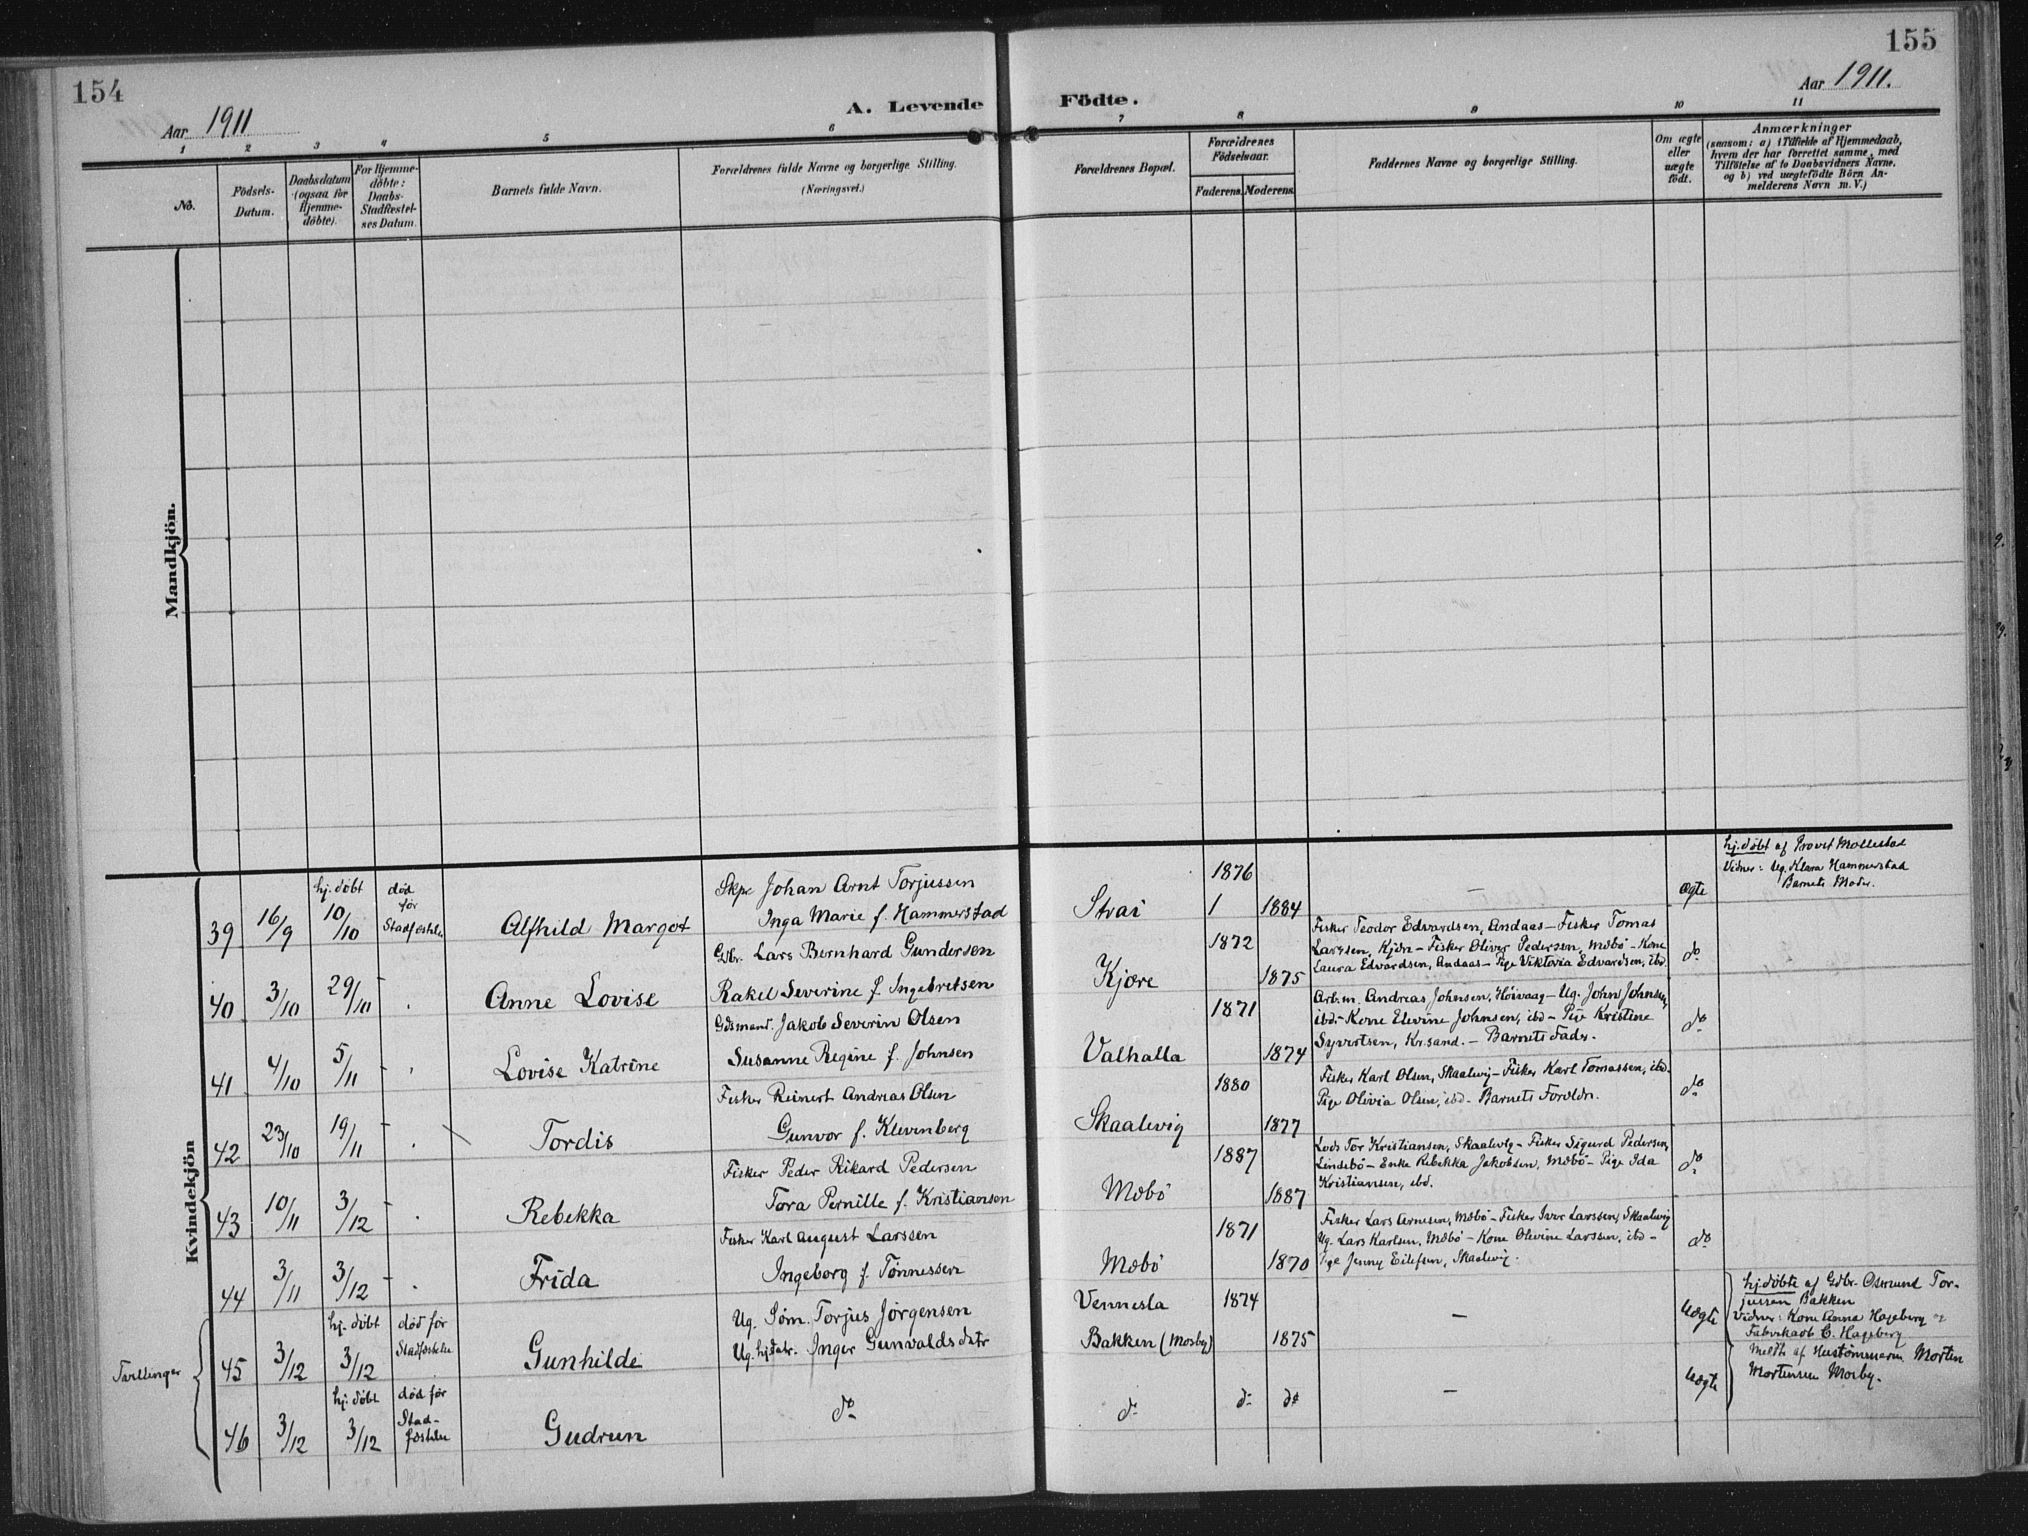 154
155
Aar 1911
A. Levende Födte.
Aar 1911.
1 2 3 4 5 6 7 8 9 10 11
No.
Födsels-
Datum.
Daabsdatum
(ogsaa for
Hjemme-
döbte).
For Hjemme-
döbte:
Daabs-
Stadfæstel-
ses Datum.
Barnets fulde Navn.
Forældrenes fulde Navne og borgerlige Stilling.
(Næringsvei.)
Forældrenes Bopæl.
Forældrenes
Födselsaar.
Faderens. Moderens.
Faddernes Navne og borgerlige Stilling.
Om ægte
eller
uægte
födt.
Anmærkninger
(saasom: a) i Tilfælde af Hjemmedaab,
hvem der har forrettet samme, med
Tilföielse af to Daabsvidners Navne,
og b) ved uægtefödte Börn An-
melderens Navn m. V.)
Mandkjön.
Kvindekjön
39
16/9
hj. döbt
10/10
död
før
Stadfæstelse
Alfhild Margot
Skpr Johan Arnt Torjussen
Inga Marie f. Hammerstad
Strai
1876
1
1884
—
ægte
hj. døbt af Provst Mollestad
Vidner: Ug. Klara Hammerstad
Barnets Moder.
40
3/10
29/10
Anne Lovise
Gbr. Lars Bernhard Gundersen
Rakel Severine f. Ingebretsen
Kjøre
1872
1875
Fisker Teodor Edvardsen, Andaas – Fisker Tomas
Larssen, Kjøn – Fisker Oliver Pedersen, Mæbö – Kone
Laura Edvardsen, Andaas – Pige Viktoria Edvardsen, ibd.
do
41
4/10
5/11
Lovise Katrine
Gdsmand. Jakob Severin Olsen
Susanne Regine f. Johnsen
Valhalla
1871
1874
Arb.m. Andreas Johnsen, Höivaag – Ug. John Johnsen,
ibd. – Kone Elevine Johnsen, ibd – Pige Kristine
Syvertsen, Kr.sand. – Barnets Fader.
do
42
23/10
19/11
Tordis
Fisker Reinert Andreas Olsen
Gunvor f. Klevenberg
Skaalevig
1880
1877
Fisker Karl Olsen, Skaalevig – Fisker Karl Tomassen, ibd.
Pige Olivia Olsen, ibd – Barnets Foræld.
do
43
10/11
3/12
Rebekka
Fisker Peder Rikard Pedersen
Tora Pernille f. Kristiansen
Mæbö
1887
1887
Lods Tor Kristiansen, Skaalevig – Fisker Sigurd Pedersen,
Lindebö – Enke Rebekka Jakobsen, Mæbö – Pige Ida
Kristiansen, ibd.
do
44
3/11
3/12
Frida
Fisker Karl August Larssen
Ingeborg f. Tönnessen
Mæbö
1871
1870
Fisker Lars Arnesen, Mæbö – Fisker Iver Larssen, Skaalevig
Ug. Lars Karlsen, Mæbö – Kone Olevine Larssen, ibd –
Pige Jenny Eilefsen, Skaalevig.
do
Tvillinger
45
3/12
hj. döbt
3/12
död før
Stadfæstelse
Gunhilde
Ug. Søm. Torjus Jörgensen
Ug. hj.datr. Inger Gunvaldsdatr
Vennesla
Bakken (Mosby)
1874
1875
—
Uægte
hj. döbte af Gdbr. Osmund Tor-
jussen Bakken
Vidner: Kone Anna Hageberg og
Fabrikarb C. Hageberg
Meldt af Hustömmerm Morten
Mortensen Mosby.
46
3/12
hj. döbt
3/12
död før
Stad-
fæstelse
Gudrun
do
do
do
do
—
Uægte